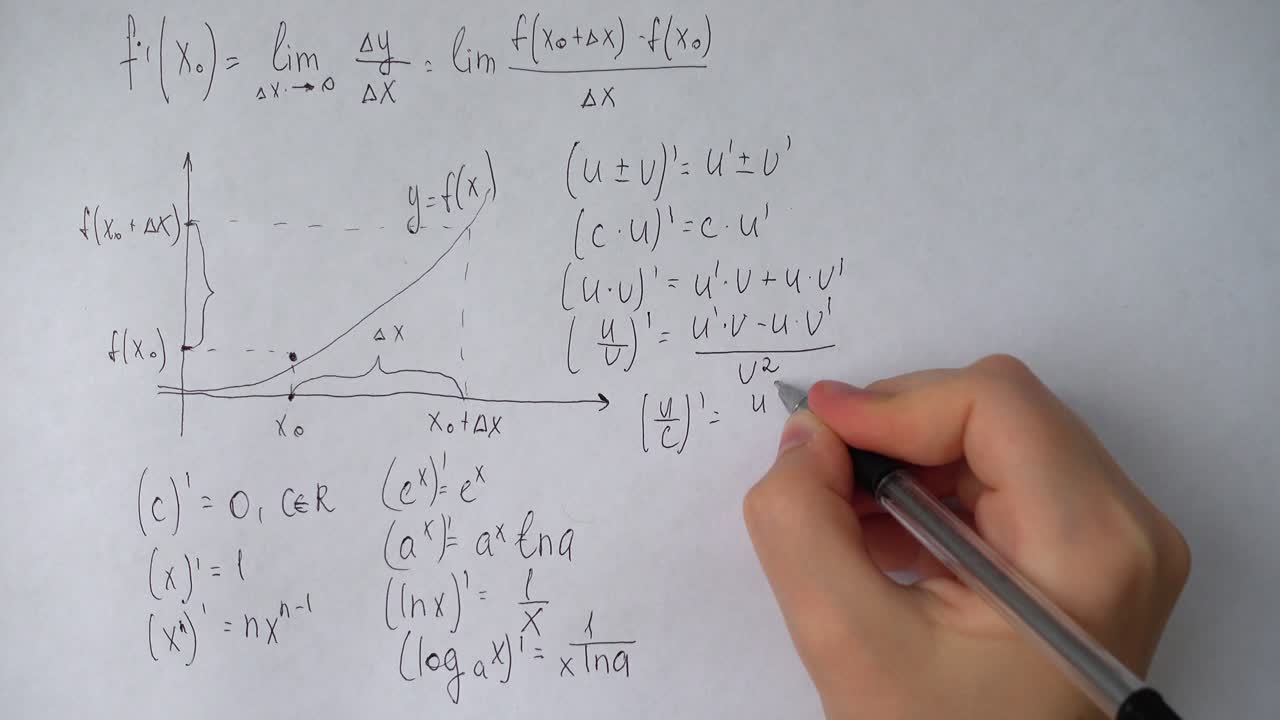 f'(x₀) = lim Δx→0 Δy/Δx = lim (f(x₀+Δx) - f(x₀))/Δx
y=f(x)
f(x₀+Δx)
f(x₀)
Δx
x₀
x₀+Δx
(u ± v)' = u' ± v'
(c · u)' = c · u'
(u · v)' = u' · v + u · v'
(u/v)' = (u' · v - u · v')/v²
(u/c)' = u
(c)' = 0, c∈R
(x)' = 1
(xⁿ)' = nxⁿ⁻¹
(eˣ)' = eˣ
(aˣ)' = aˣ lna
(lnx)' = 1/x
(logₐx)' = 1/(x lna)